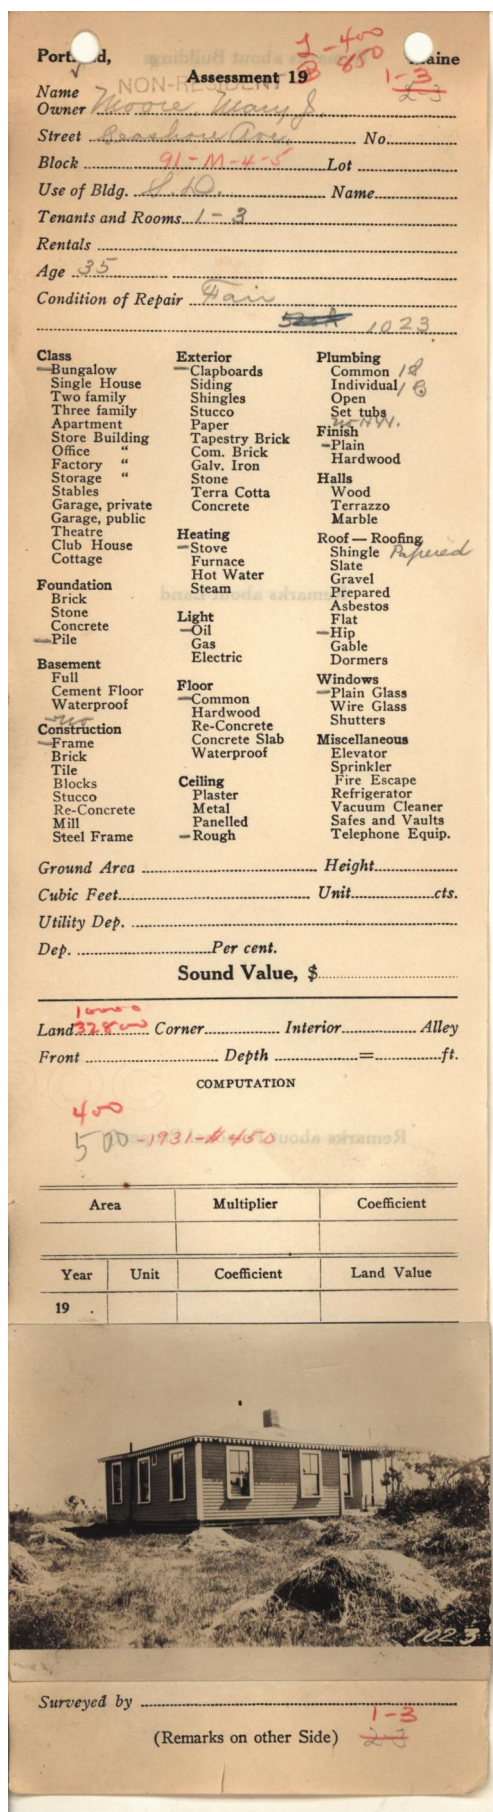 Portland, Maine
L - 400
B 850
Assessment 19
1-3
2-3
NON-RESIDENT
Name
Owner Moore, Mary J.
Street Seashore Ave. No.
Block 91-M-4-5 Lot
Use of Bldg. S.D. Name
Tenants and Rooms 1-3
Rentals
Age 35
Condition of Repair Fair
1023
Class
Bungalow
Single House
Two family
Three family
Apartment
Store Building
Office "
Factory "
Storage "
Stables
Garage, private
Garage, public
Theatre
Club House
Cottage
Foundation
Brick
Stone
Concrete
Pile
Basement
Full
Cement Floor
Waterproof
no
Construction
Frame
Brick
Tile
Blocks
Stucco
Re-Concrete
Mill
Steel Frame
Exterior
Clapboards
Siding
Shingles
Stucco
Paper
Tapestry Brick
Com. Brick
Galv. Iron
Stone
Terra Cotta
Concrete
Heating
Stove
Furnace
Hot Water
Steam
Light
Oil
Gas
Electric
Floor
Common
Hardwood
Re-Concrete
Concrete Slab
Waterproof
Ceiling
Plaster
Metal
Panelled
Rough
Plumbing
Common 1 S
Individual 1 C
Open
Set tubs
no H.W.
Finish
Plain
Hardwood
Halls
Wood
Terrazzo
Marble
Roof — Roofing
Shingle Papered
Slate
Gravel
Prepared
Asbestos
Flat
Hip
Gable
Dormers
Windows
Plain Glass
Wire Glass
Shutters
Miscellaneous
Elevator
Sprinkler
Fire Escape
Refrigerator
Vacuum Cleaner
Safes and Vaults
Telephone Equip.
Ground Area Height
Cubic Feet Unit cts.
Utility Dep.
Dep. Per cent.
Sound Value, $
Land Corner Interior Alley
Front Depth = ft.
COMPUTATION
400
500-1931-#450
Area Multiplier Coefficient
Year Unit Coefficient Land Value
19 .
1023
Surveyed by
1-3
(Remarks on other Side) 2-3